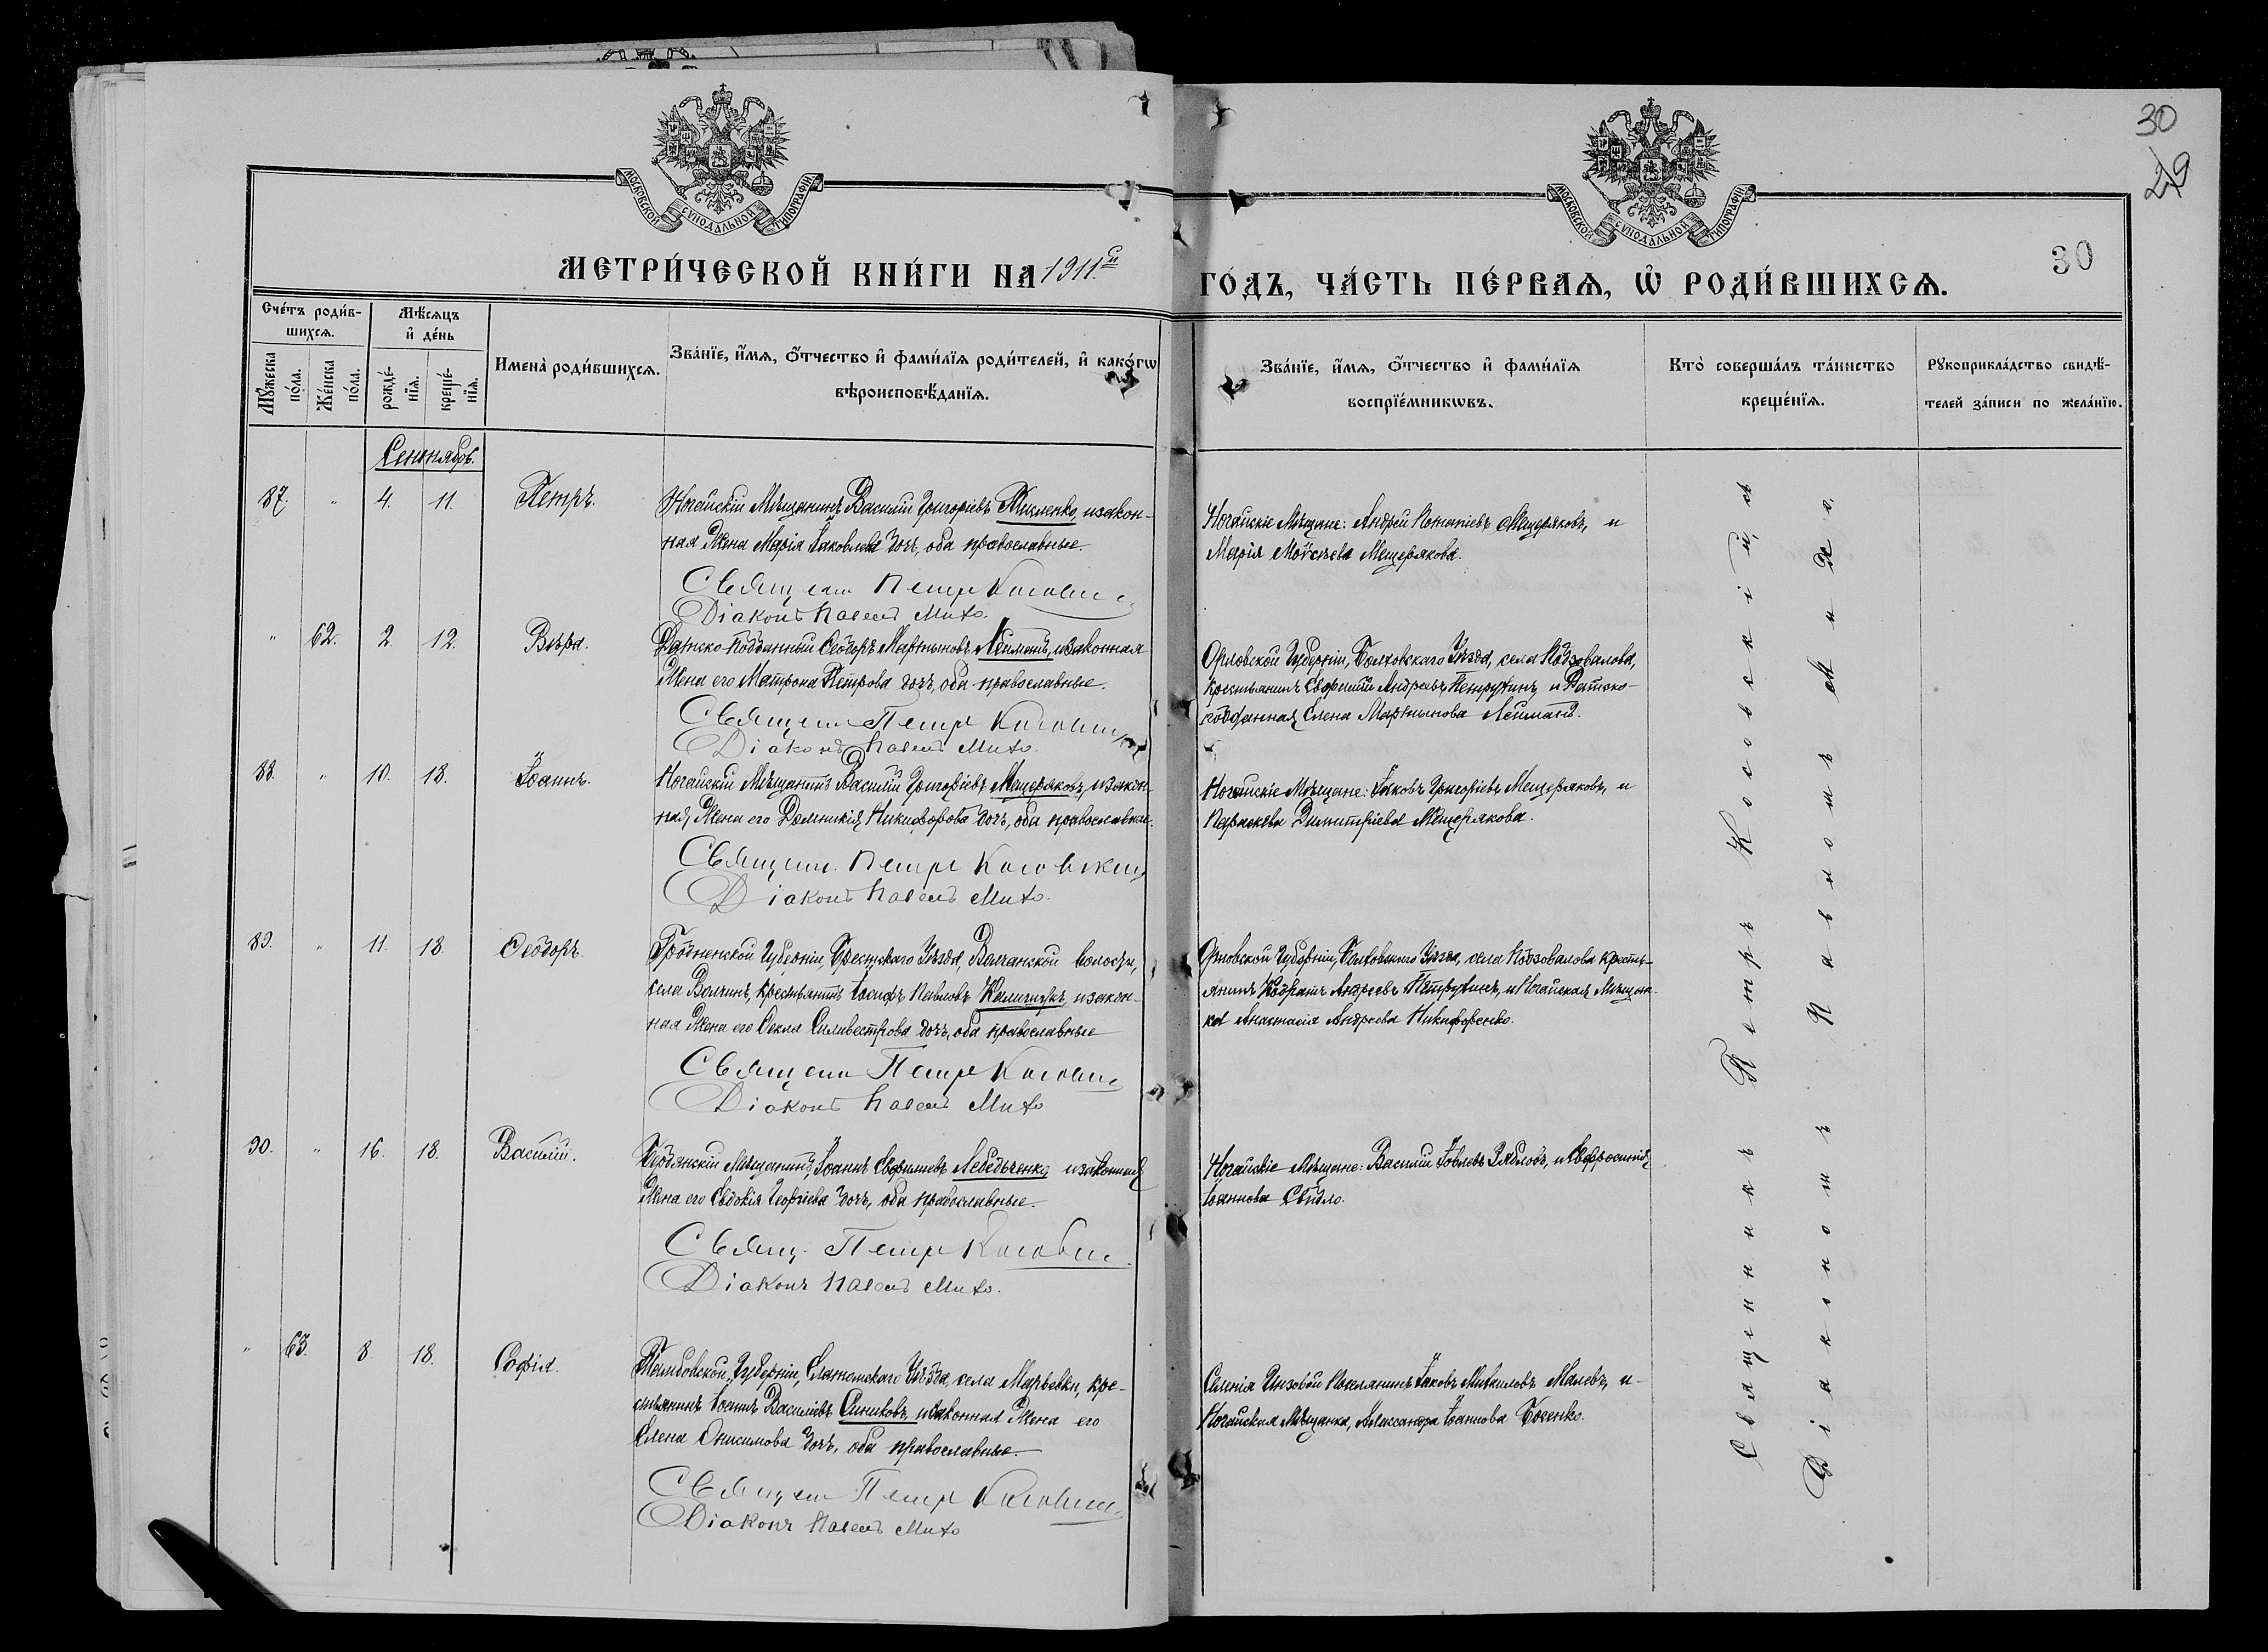 30
29
МОСКОВСКОЙ СѴНОДАЛЬНОЙ ТИПОГРАФІИ
МОСКОВСКОЙ СѴНОДАЛЬНОЙ ТИПОГРАФІИ
30
МЕТРИ́ЧЕСКОЙ КНИ́ГИ НА 1911й
ГО́ДЪ, ЧА́СТЬ ПЕ́РВАЯ, Ѡ҆ РОДИ́ВШИХСЯ.
Сче́тъ роди́в-
шихся.
Мѣ́сяцъ
и҆ де́нь
Мꙋ́жеска
по́ла.
Же́нска
по́ла.
рожде́-
нїя.
креще́-
нїя.
Имена̀ роди́вшихся.
Зва́нїе, и҆́мя, ѻ҆́тчество и҆ фами́лїя роди́телей, и҆ како́гѡ
вѣроисповѣ́данїя.
Зва́нїе, и҆́мя, ѻ҆́тчество и҆ фами́лїя
воспрїе́мникѡвъ.
Кто̀ соверша́лъ та́инство
креще́нїя.
Рꙋкоприкла́дство свидѣ́-
телей за́писи по жела́нїю.
Сентябрь.
87. " 4. 11. Петръ.
Ногайскій Мѣщанинъ Василій Григоріевъ Кисленко, и закон-
ная Жена Марія Іаковлева дочь, оба православные.
Священ Петръ Косовскій
Діаконъ Павелъ Михо.
Ногайскіе Мѣщане: Андрей Потапіевъ Мещеряковъ, и
Марія Моѵсѣева Мещерякова.
" 62. 2. 12. Вѣра.
Датско-подданный Ѳеодоръ Мартыновъ Лейманъ, и законная
Жена его Матрона Петрова дочь, оба православные.
Священ Петръ Косовскій
Діаконъ Павелъ Михо.
Орловской Губерніи, Болховскаго Уѣзда, села Подзовалова,
крестьянинъ Евфимій Андреевъ Петрухинъ и Датско-
подданная Елена Мартынова Лейманъ.
88. " 10. 18. Іоаннъ.
Ногайскій Мѣщанинъ Василій Григоріевъ Мещеряковъ, и закон-
ная Жена его Домникія Никифорова дочь, оба православные.
Священ. Петръ Косовскій
Діаконъ Павелъ Михо.
Ногайскіе Мѣщане: Іаковъ Григоріевъ Мещеряковъ, и
Параскева Димитріева Мещерякова.
89. " 11. 18. Ѳеодоръ.
Гродненской Губерніи, Брестскаго Уѣзда, Волчанской волости,
села Волчинъ, крестьянинъ Іосифъ Павловъ, и закон-
ная Жена его Ѳекла Силивестрова дочь, оба православные
Священ Петръ Косовскій
Діаконъ Павелъ Михо
Орловской Губерніи, Болховскаго Уѣзда, села Подзовалова кресть-
янинъ Кодратъ Андреевъ Петрухинъ, и Ногайская Мѣщан-
ка Анастасія Андреева Никифоренко.
90. " 16. 18. Василій.
Бердянскій Мѣщанинъ Іоаннъ Евфиміевъ Лебедченко и законная
Жена его Евдокія Георгіева дочь, оба православные.
Свящ. Петръ Косовскій
Діаконъ Павелъ Михо.
Ногайскіе Мѣщане: Василій Іовлевъ, и Евфросинія
Іоаннова.
" 63. 8. 18. Софія.
Тамбовской Губерніи, Елатомскаго Уѣзда, села Марьевки, кре-
стьянинъ Іоаннъ Василіевъ Синиковъ, и законная Жена его
Елена Онисимова дочь, оба православные.
Священ Петръ Косовскій
Діаконъ Павелъ Михо
Селенія Инзовки Поселянинъ Іаковъ Михаиловъ Малевъ, и
Ногайская Мѣщанка, Александра Іоаннова Боженко.
Священникъ Петръ Косовскій, съ
Діакономъ Павломъ Михо.